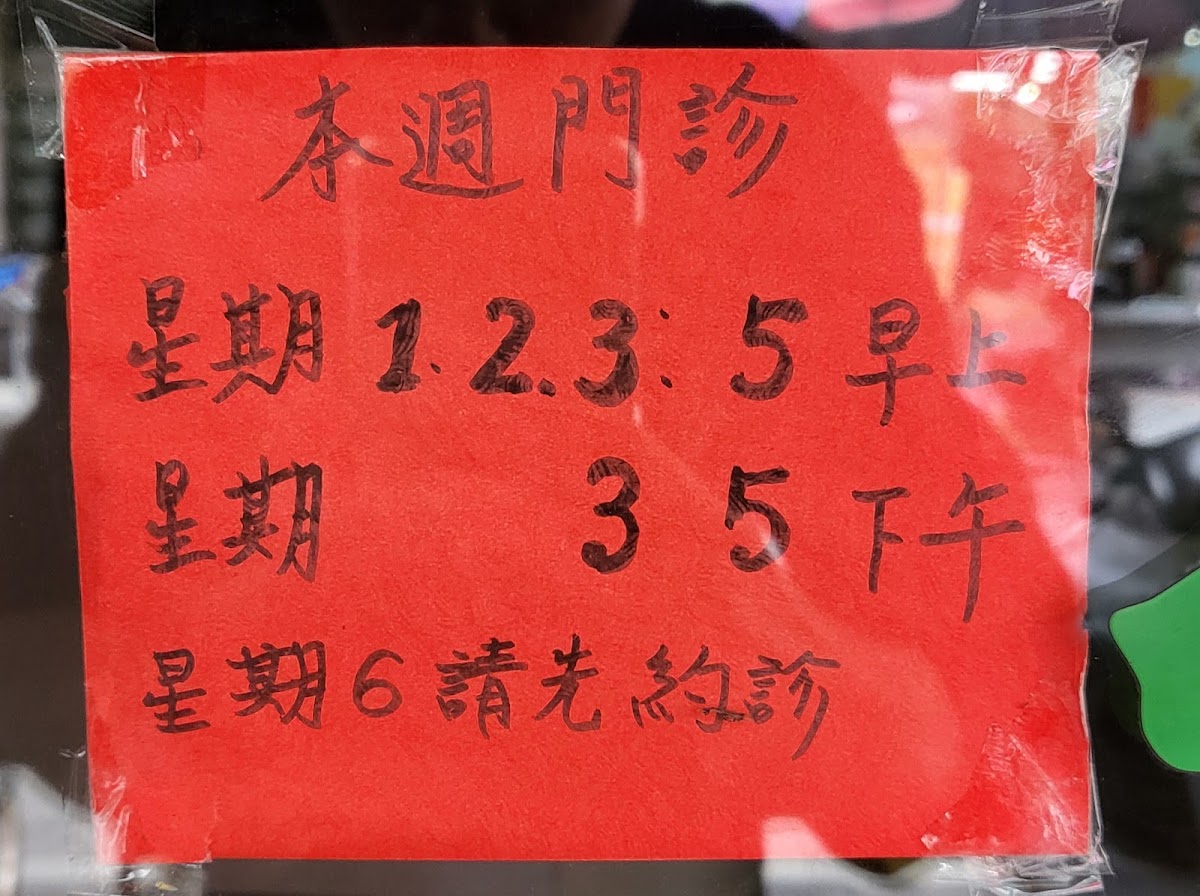 本週門診
星期 1.2.3: 5 早上
星期 3 5 下午
星期6請先約診